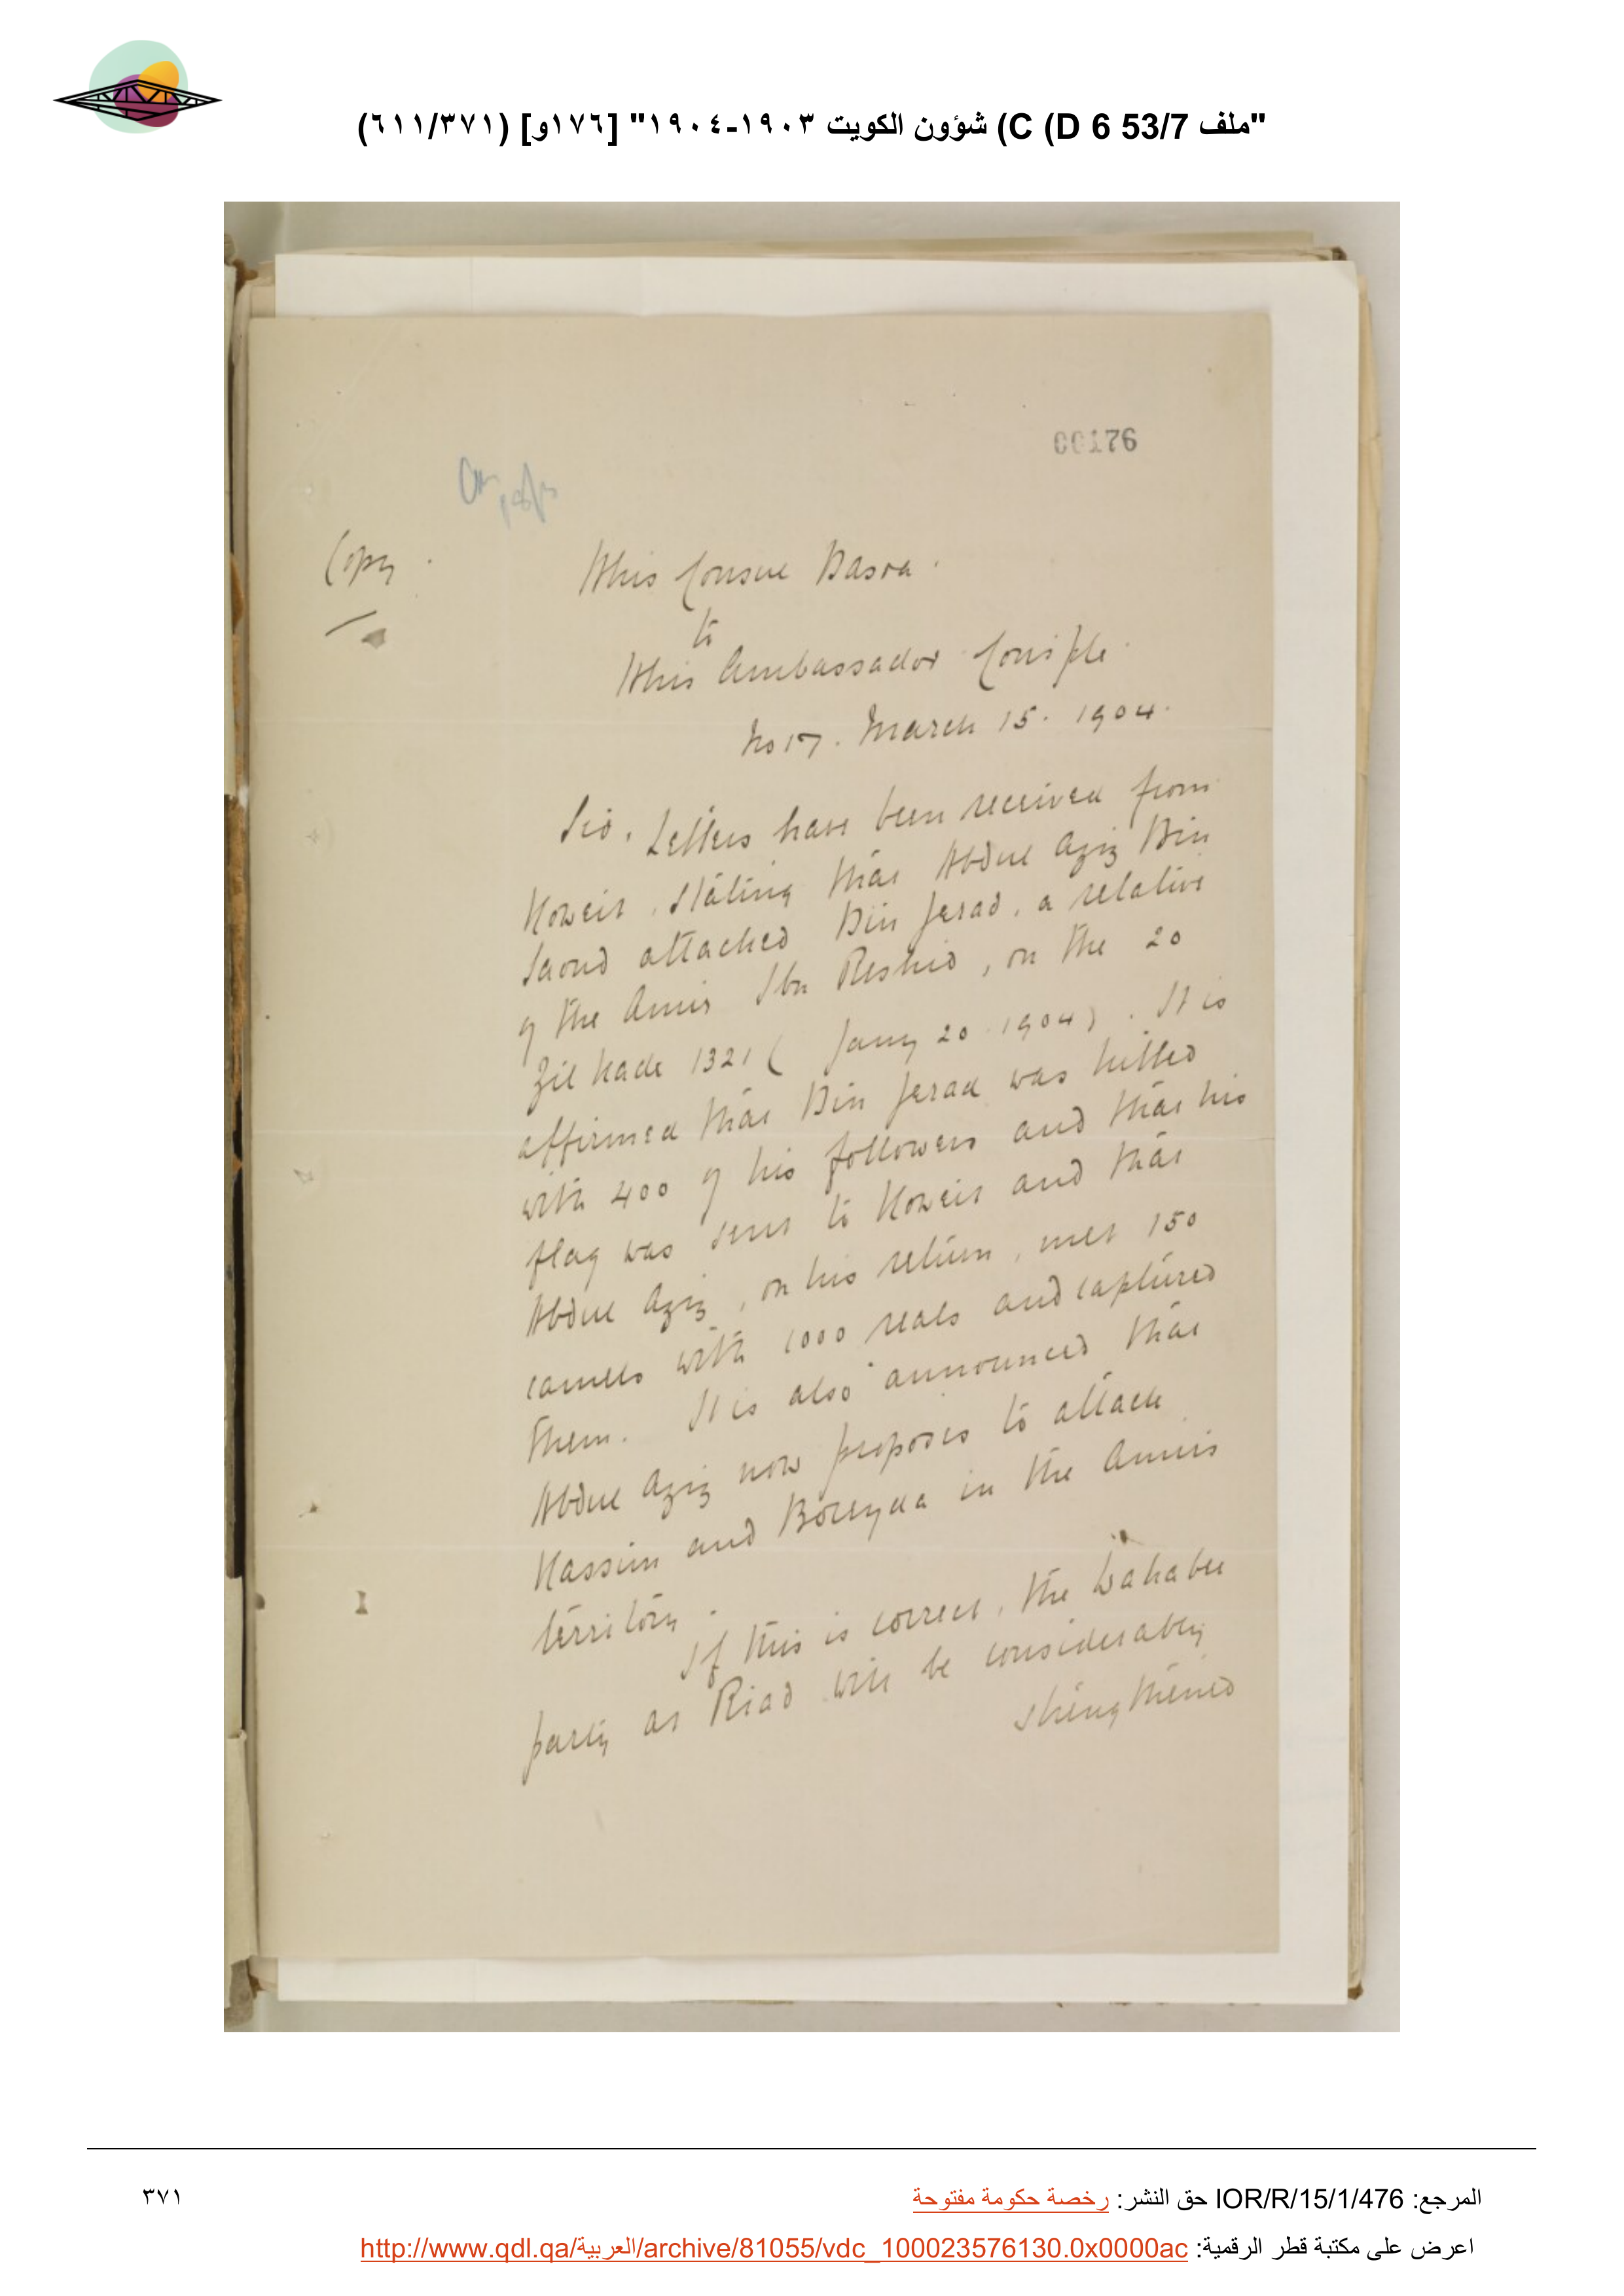 "ملف 53/7 C (D 6) شؤون الكويت ١٩٠٣-١٩٠٤" [١٧٦و] (٦١١/٣٧١)
00176
Copy.
HM's Consul Basra.
to
HM's Ambassador Con'ple.
No 17. March 15. 1904.
Sir. Letters have been received from
Koweit, stating that Abdul Aziz Bin
Saoud attacked Bin Jerad, a relative
of the Amir Ibn Reshid, on the 20
Zil Kade 1321 ( Jany 20. 1904). It is
affirmed that Bin Jerad was killed
with 400 of his followers and that his
flag was sent to Koweit and that
Abdul Aziz, on his return, met 150
camels with 1000 reals and captured
them. It is also announced that
Abdul Aziz now proposes to attack
Kassim and Boreyda in the Amir's
territory.
If this is correct, the Wahabee
party at Riad will be considerably
strengthened
المرجع: IOR/R/15/1/476 حق النشر: رخصة حكومة مفتوحة
٣٧١
اعرض على مكتبة قطر الرقمية: http://www.qdl.qa/العربية/archive/81055/vdc_100023576130.0x0000ac